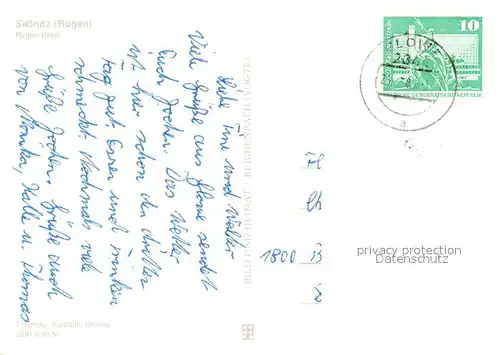 Saßnitz (Rügen)
Rügen-Hotel
Liebe und Walter
Viele Grüße aus Glowe sendet
Euch Jochen. Das Wetter
ist hier schon den dritten
Tag gut. Essen und Trinken
schmeckt. Nochmals viele
Grüße Jochen. Grüße auch
von Monika, Kalle u. Thomas
BILD UND HEIMAT REICHENBACH (VOGTL)
10
DEUTSCHE DEMOKRATISCHE REPUBLIK
GLOWE
a
1800
privacy protection
Datenschutz